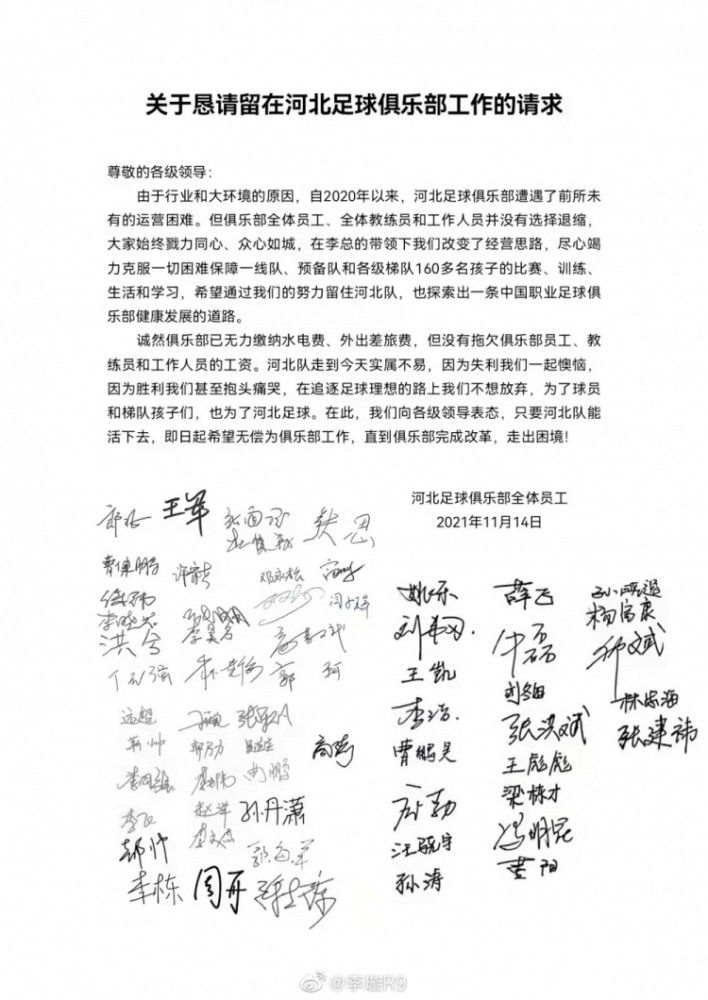 关于恳请留在河北足球俱乐部工作的请求
尊敬的各级领导：
由于行业和大环境的原因，自2020年以来，河北足球俱乐部遭遇了前所未
有的运营困难。但俱乐部全体员工、全体教练员和工作人员并没有选择退缩，
大家始终戮力同心、众心如城，在李总的带领下我们改变了经营思路，尽心竭
力克服一切困难保障一线队、预备队和各级梯队160多名孩子的比赛、训练、
生活和学习，希望通过我们的努力留住河北队，也探索出一条中国职业足球俱
乐部健康发展的道路。
诚然俱乐部已无力缴纳水电费、外出差旅费，但没有拖欠俱乐部员工、教
练员和工作人员的工资。河北队走到今天实属不易，因为失利我们一起懊恼，
因为胜利我们甚至抱头痛哭，在追逐足球理想的路上我们不想放弃，为了球员
和梯队孩子们，也为了河北足球。在此，我们向各级领导表态，只要河北队能
活下去，即日起希望无偿为俱乐部工作，直到俱乐部完成改革，走出困境!
河北足球俱乐部全体员工
2021年11月14日
王军
洪兮
郭珂
远超
孙丹潇
李栋
周丹
姚乐
王凯
李浩
曹鹏昊
孙涛
薛飞
张洪斌
王彪彪
梁栋才
冯明昆
杨富康
林忠海
张建祎
@李璇R9